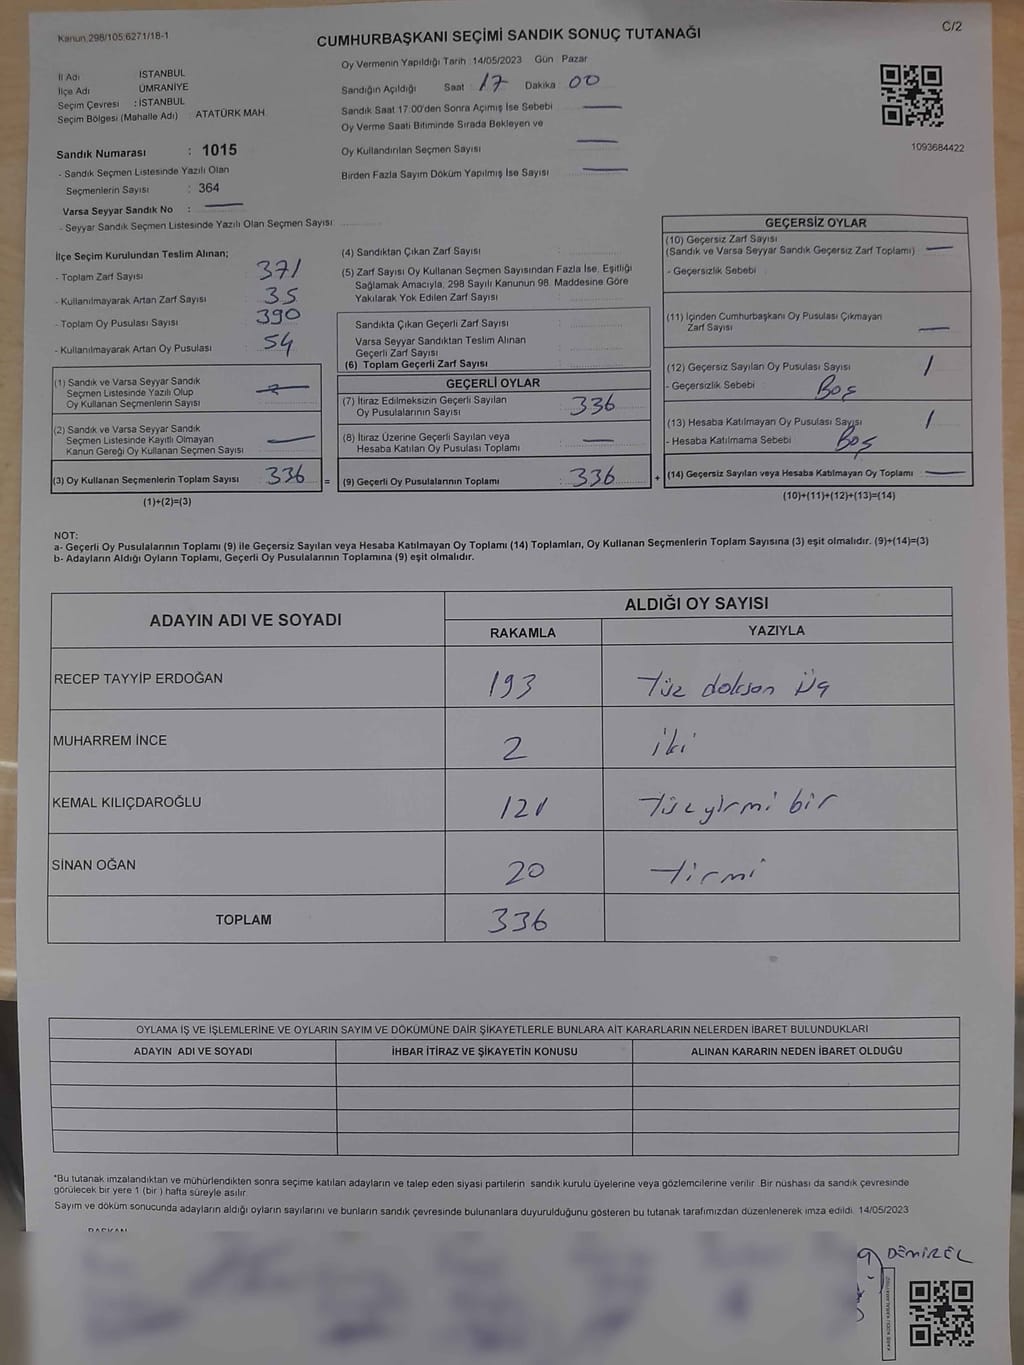 Kanun 298/105 6271/18-1
C/2
CUMHURBAŞKANI SEÇİMİ SANDIK SONUÇ TUTANAĞI
Oy Vermenin Yapıldığı Tarih : 14/05/2023 Gün Pazar
İl Adı İSTANBUL
İlçe Adı ÜMRANİYE
Seçim Çevresi : İSTANBUL
Seçim Bölgesi (Mahalle Adı) ATATÜRK MAH.
Sandığın Açıldığı Saat : 17 Dakika : 00
Sandık Saat 17:00'den Sonra Açımış İse Sebebi
Oy Verme Saati Bitiminde Sırada Bekleyen ve
Oy Kullandırılan Seçmen Sayısı
Birden Fazla Sayım Döküm Yapılmış İse Sayısı
1093684422
Sandık Numarası : 1015
- Sandık Seçmen Listesinde Yazılı Olan
Seçmenlerin Sayısı : 364
Varsa Seyyar Sandık No :
- Seyyar Sandık Seçmen Listesinde Yazılı Olan Seçmen Sayısı
İlçe Seçim Kurulundan Teslim Alınan;
- Toplam Zarf Sayısı 371
- Kullanılmayarak Artan Zarf Sayısı 35
- Toplam Oy Pusulası Sayısı 390
- Kullanılmayarak Artan Oy Pusulası 54
(1) Sandık ve Varsa Seyyar Sandık
Seçmen Listesinde Yazılı Olup
Oy Kullanan Seçmenlerin Sayısı
(2) Sandık ve Varsa Seyyar Sandık
Seçmen Listesinde Kayıtlı Olmayan
Kanun Gereği Oy Kullanan Seçmen Sayısı
(3) Oy Kullanan Seçmenlerin Toplam Sayısı 336 =
(1)+(2)=(3)
(4) Sandıktan Çıkan Zarf Sayısı
(5) Zarf Sayısı Oy Kullanan Seçmen Sayısından Fazla İse, Eşitliği
Sağlamak Amacıyla, 298 Sayılı Kanunun 98. Maddesine Göre
Yakılarak Yok Edilen Zarf Sayısı
Sandıkta Çıkan Geçerli Zarf Sayısı
Varsa Seyyar Sandıktan Teslim Alınan
Geçerli Zarf Sayısı
(6) Toplam Geçerli Zarf Sayısı
GEÇERLİ OYLAR
(7) İtiraz Edilmeksizin Geçerli Sayılan
Oy Pusulalarının Sayısı 336
(8) İtiraz Üzerine Geçerli Sayılan veya
Hesaba Katılan Oy Pusulası Toplamı
(9) Geçerli Oy Pusulalarının Toplamı 336 +
GEÇERSİZ OYLAR
(10) Geçersiz Zarf Sayısı
(Sandık ve Varsa Seyyar Sandık Geçersiz Zarf Toplamı)
- Geçersizlik Sebebi
(11) İçinden Cumhurbaşkanı Oy Pusulası Çıkmayan
Zarf Sayısı
(12) Geçersiz Sayılan Oy Pusulası Sayısı 1
- Geçersizlik Sebebi : Boş
(13) Hesaba Katılmayan Oy Pusulası Sayısı 1
- Hesaba Katılmama Sebebi Boş
(14) Geçersiz Sayılan veya Hesaba Katılmayan Oy Toplamı
(10)+(11)+(12)+(13)=(14)
NOT:
a- Geçerli Oy Pusulalarının Toplamı (9) ile Geçersiz Sayılan veya Hesaba Katılmayan Oy Toplamı (14) Toplamları, Oy Kullanan Seçmenlerin Toplam Sayısına (3) eşit olmalıdır. (9)+(14)=(3)
b- Adayların Aldığı Oyların Toplamı, Geçerli Oy Pusulalarının Toplamına (9) eşit olmalıdır.
ADAYIN ADI VE SOYADI
ALDIĞI OY SAYISI
RAKAMLA YAZIYLA
RECEP TAYYİP ERDOĞAN 193 Yüz doksan Üç
MUHARREM İNCE 2 iki
KEMAL KILIÇDAROĞLU 121 Yüzyirmi bir
SİNAN OĞAN 20 Yirmi
TOPLAM 336
OYLAMA İŞ VE İŞLEMLERİNE VE OYLARIN SAYIM VE DÖKÜMÜNE DAİR ŞİKAYETLERLE BUNLARA AİT KARARLARIN NELERDEN İBARET BULUNDUKLARI
ADAYIN ADI VE SOYADI İHBAR İTİRAZ VE ŞİKAYETİN KONUSU ALINAN KARARIN NEDEN İBARET OLDUĞU
*Bu tutanak imzalandıktan ve mühürlendikten sonra seçime katılan adayların ve talep eden siyasi partilerin sandık kurulu üyelerine veya gözlemcilerine verilir. Bir nüshası da sandık çevresinde
görülecek bir yere 1 (bir ) hafta süreyle asılır.
Sayım ve döküm sonucunda adayların aldığı oyların sayılarını ve bunların sandık çevresinde bulunanlara duyurulduğunu gösteren bu tutanak tarafımızdan düzenlenerek imza edildi. 14/05/2023
BAŞKAN
DEMİREL